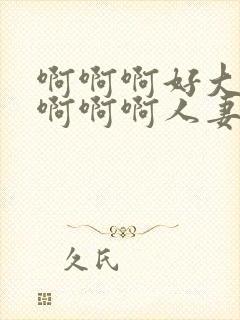 啊啊啊好大
啊啊啊人妻
久氏